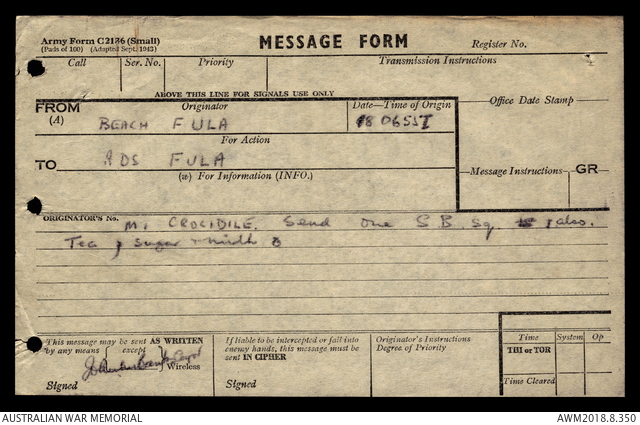 Army Form C2136 (Small)
(Pads of 100) (Adapted Sept. 1943)
MESSAGE FORM
Register No.
Call Ser. No. Priority Transmission Instructions
ABOVE THIS LINE FOR SIGNALS USE ONLY
FROM (A) Originator Date—Time of Origin Office Date Stamp
BEACH FULA 180655I
For Action
TO ADS FULA
(w) For Information (INFO.) Message Instructions GR
ORIGINATOR'S No.
M1 CROCIDILE. Send One S B. Sq. also.
Tea & Sugar
This message may be sent AS WRITTEN
by any means except
Wireless
Signed
If liable to be intercepted or fall into
enemy hands, this message must be
sent IN CIPHER
Signed
Originator's Instructions
Degree of Priority
Time System Op
THI or TOR
Time Cleared
AUSTRALIAN WAR MEMORIAL AWM2018.8.350